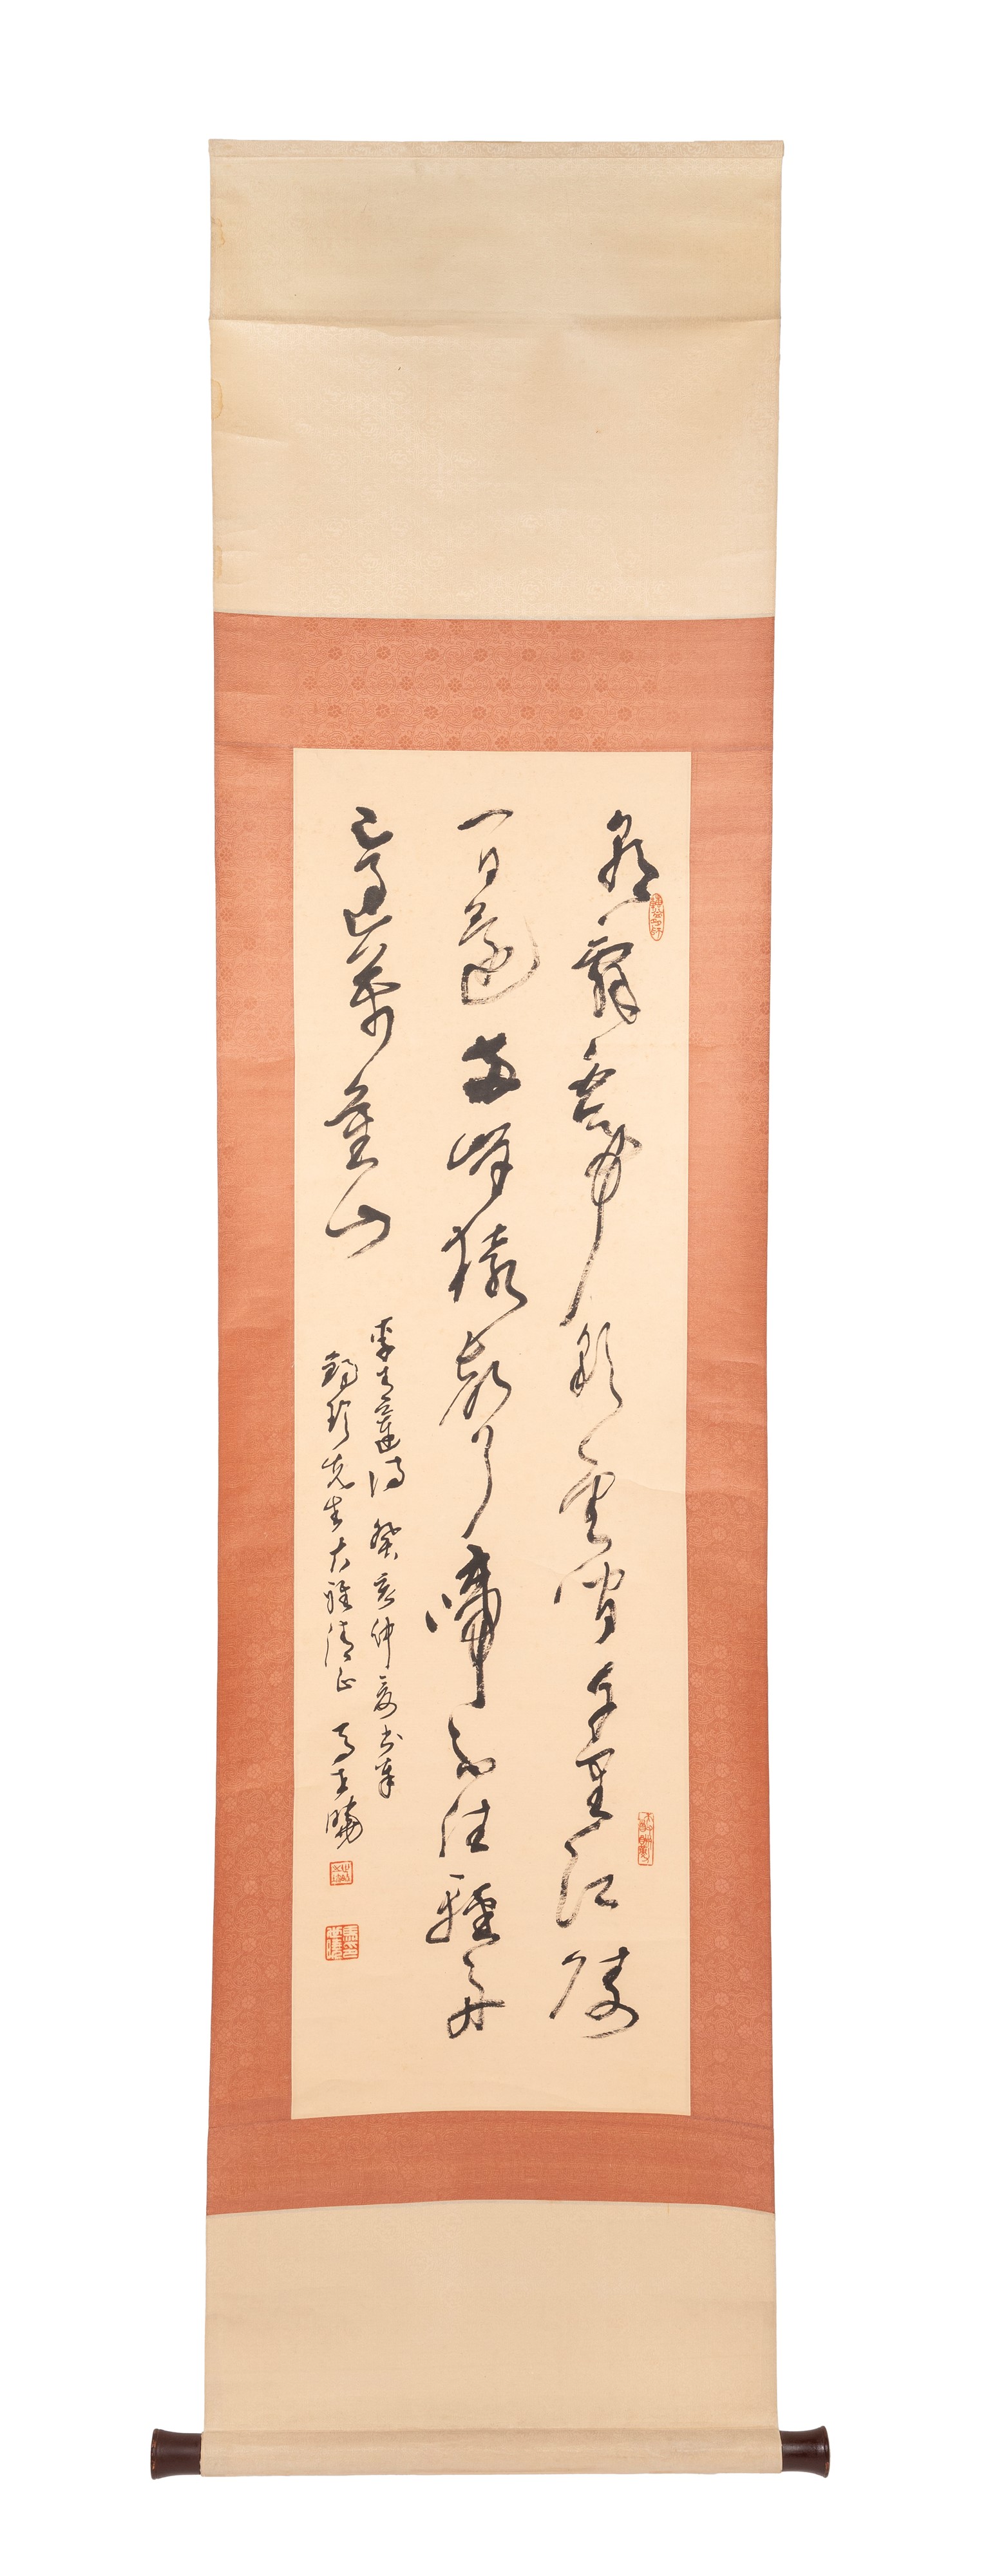 朝辭白帝彩雲間千里江陵
一日還兩岸猿聲啼不住輕舟
已過萬重山
李青蓮詩 癸亥仲夏書奉
珍先生大雅清正